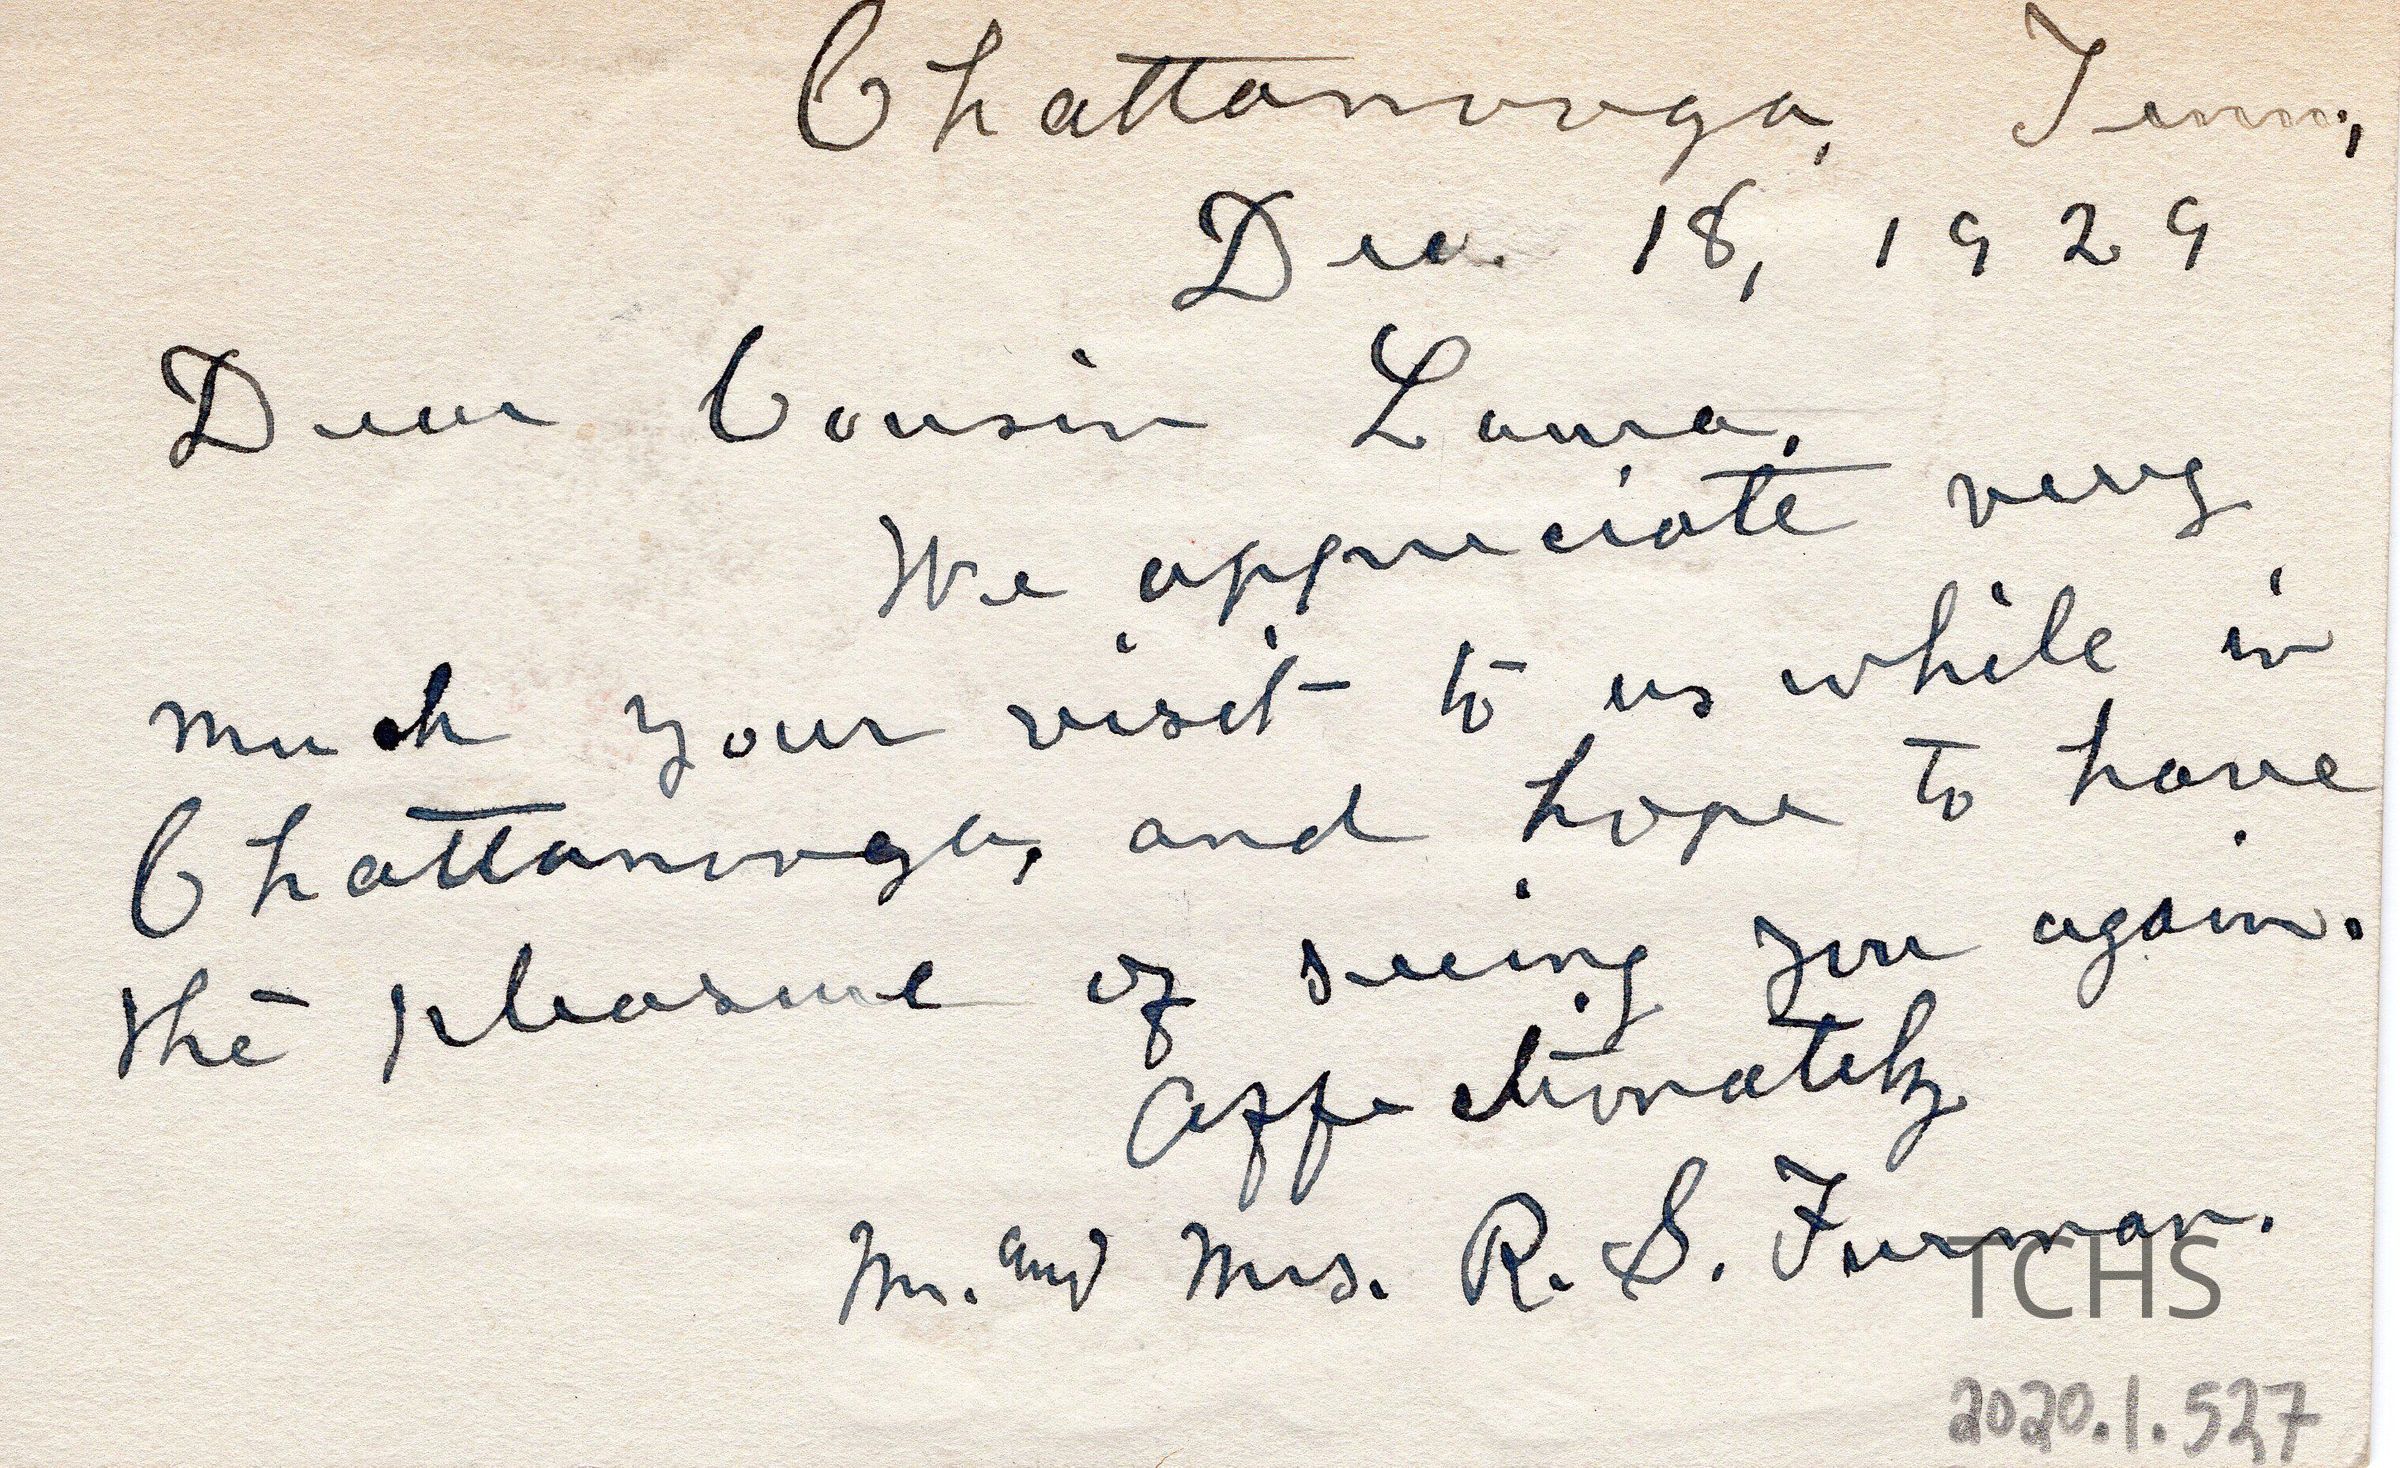 Chattanooga, Tenn.,
Dec. 18, 1929
Dear Cousin Laura,
We appreciate very
much your visit to us while in
Chattanooga, and hope to have
the pleasure of seeing you again.
Affectionately
Mr. and Mrs. R. S. Furman.
TCHS
2020.1.527